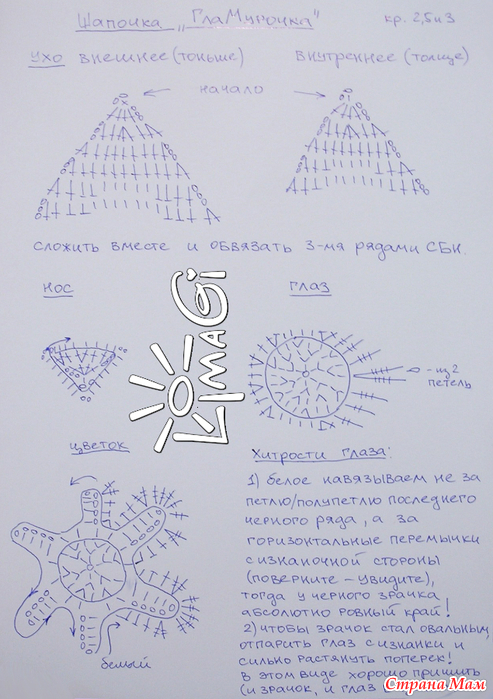 Шапочка „ГлаМурочка"
кр. 2,5 и 3
ухо внешнее (тоньше)
внутреннее (толще)
начало
сложить вместе и обвязать 3-мя рядами СБН.
нос
глаз
- из 2
петель
цветок
белый
Хитрости глаза:
1) белое навязываем не за
петлю/полупетлю последнего
черного ряда, а за
горизонтальные перемычки
с изнаночной стороны
(поверните - увидите),
тогда у черного зрачка
абсолютно ровный край!
2) чтобы зрачок стал овальным,
отпарить глаз с изнанки и
сильно растянуть поперек!
в этом виде хорошо пришить
(и зрачок, и глаз
LiMaGi
Страна Мам